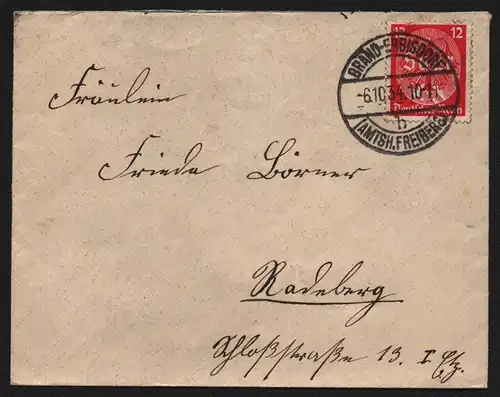 12 12
BRAND-ERBISDORF
-6.10.34.10-11
b
(AMTSH. FREIBERG)
Deutsches Reich
Fräulein
Frieda Börner
Radeberg
Schloßstraße 13. I Etg.